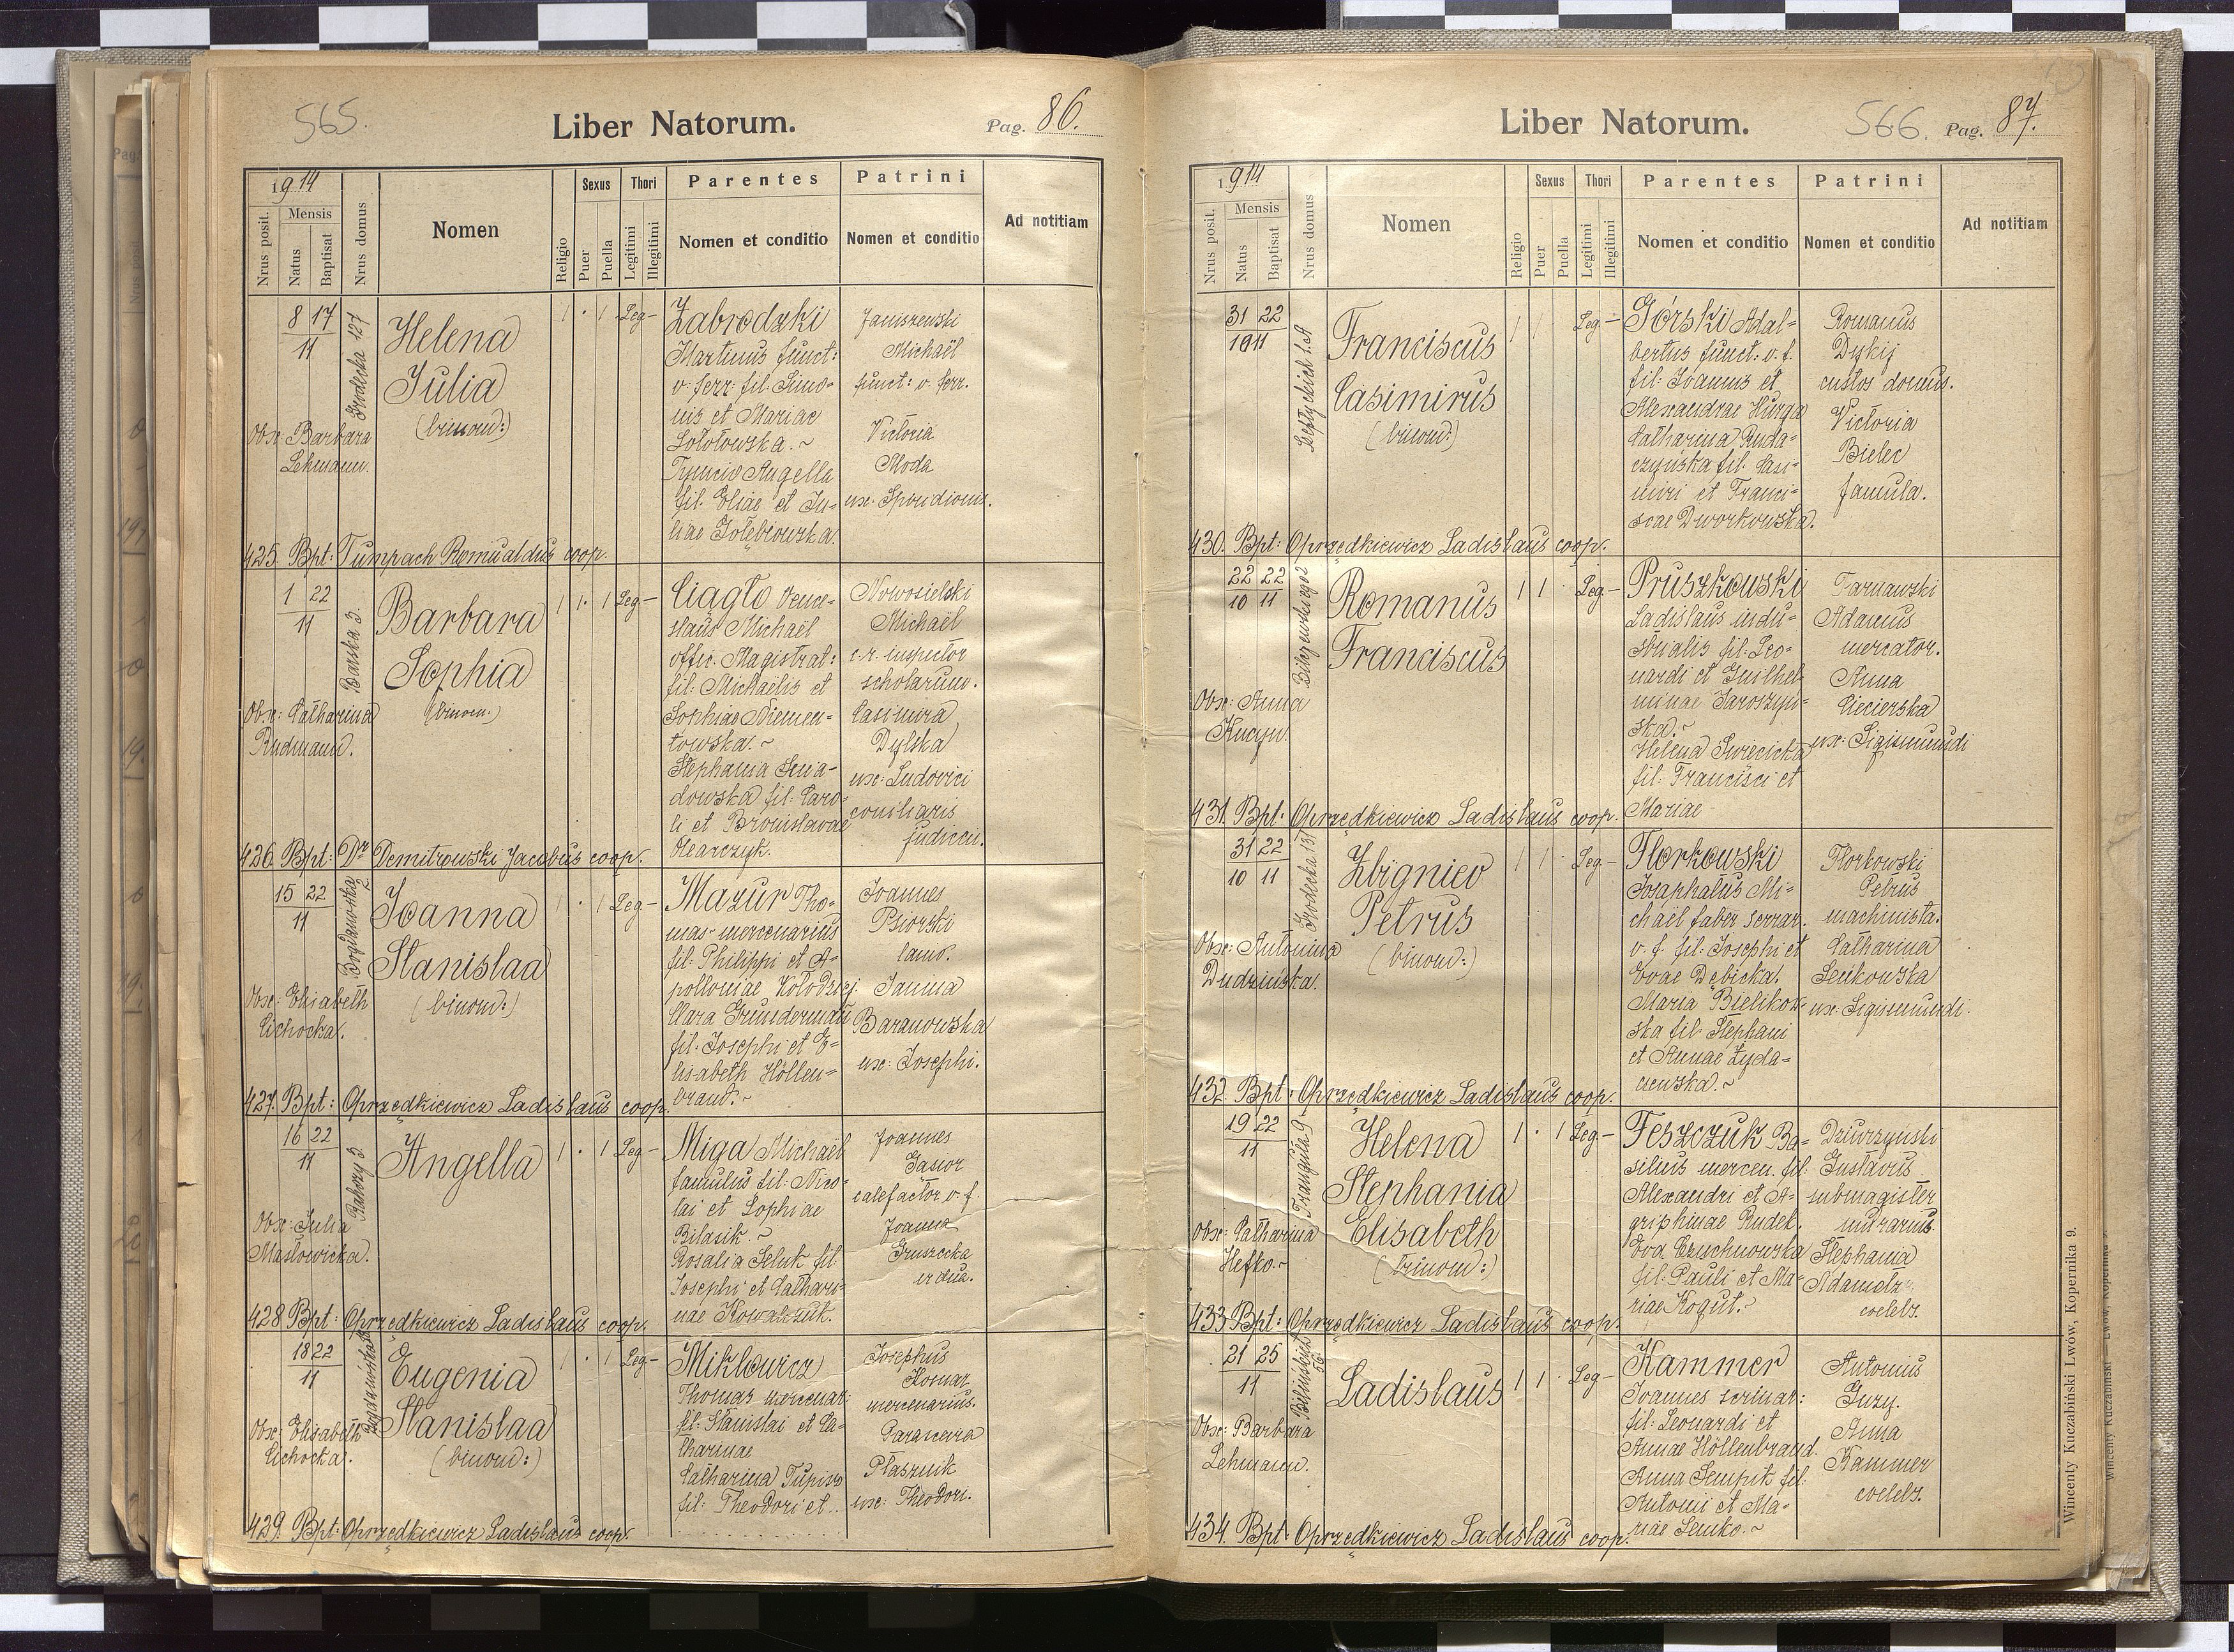 565.
Liber Natorum.
Pag. 86.
1914
Nrus posit.
Mensis
Natus
Baptisat
Nrus domus
Nomen
Religio
Sexus
Puer
Puella
Thori
Legitimi
Illegitimi
Parentes
Nomen et conditio
Patrini
Nomen et conditio
Ad notitiam
8 17
11
Grodecka 127
Helena
Julia
(binom:)
Obx: Barbara
Lehmann.
1 · 1 Leg-
Zabrodzki
Martinus funct:
v. ferr: fil. Simo-
nis et Mariae
Sołotowska.~
Tymciw Angella
fil. Eliae et Ju-
liae Gołębiowska.
Janiszewski
Michaël
funct: v. ferr.
Victoria
Moda
ux: Spiridionis.
425. Bpt: Tumpach Romualdus coop.
1 22
11
Barska 3.
Barbara
Sophia
(binom:)
Obx: Catharina
Rudmann.
1 · 1 Leg-
Ciągło Vence-
slaus Michaël
offic. Magistrat:
fil: Michaëlis et
Sophiae Niemen-
towska.~
Stephania
dowska fil: Caro-
li et Bronislavae
Olearczyk.
Nowosielski
Michaël
c.r. inspector
scholarum.
Casimira
Dylska
ux: Ludovici
consiliaris
judicii.
426 Bpt: Dr Demitrowski Jacobus coop.
15 22
11
Bogdanowka 2
Joanna
Stanislaa
(binom:)
Obx: Elisabeth
Cichocka.
1 · 1 Leg-
Mazur Tho-
mas mercenarius
fil: Philippi et A-
polloniae Kołodziej
Clara Grinderman
fil: Josephi et E-
lisabeth Höllen-
brand.~
Joannes
Psiorski
lanio.
Janina
Baranowska
ux: Josephi.
427. Bpt: Oprzędkiewicz Ladislaus coop.
16 22
11
Angella
Obx: Julia
Masłowicka.
1 · 1 Leg-
Miga Michaël
famulus fil: Nico-
lai et Sophiae
Bilasik.~
Rosalia Seluk fil
Josephi et Cathari-
nae Kowalczuk.
Joannes
Gasior
calefactor v. f.
Joanna
Gruszecka
vidua.
428 Bpt: Oprzędkiewicz Ladislaus coop.
18 22
11
Eugenia
Stanislaa
(binom:)
Obx: Elisabeth
Cichocka.
1 · 1 Leg-
Miklowicz
Thomas mercenar:
fil: Stanislai et Ca-
tharinae
Catharina Tupiss
fil: Theodori et..
Josephus
Komar
mercenarius.
Parascevia
Ptasznik
ux: Theodori.
429. Bpt: Oprzędkiewicz Ladislaus coop.
Liber Natorum.
566.
Pag. 87.
1914
Nrus posit.
Mensis
Natus
Baptisat
Nrus domus
Nomen
Religio
Sexus
Puer
Puella
Thori
Legitimi
Illegitimi
Parentes
Nomen et conditio
Patrini
Nomen et conditio
Ad notitiam
31 22
10 11
Franciscus
Casimirus
(binom:)
1 1 · Leg-
Górski Adal-
bertus funct: v. f.
fil: Joannis et
Alexandrae Hurga
Catharina Ruda-
czyńska fil: Casi-
miri et Franci-
scae Dworkowska.
Romanus
Dykij
custos domus.
Victoria
Bielec
famula.
430. Bpt: Oprzędkiewicz Ladislaus coop.
22 22
10 11
Romanus
Franciscus
Obx: Anna
Kucyn.
1 1 · Leg-
Pruszkowski
Ladislaus indu-
strialis fil: Leo-
nardi et Guilhel
minae Jaroszyn-
ska.~
Helena Swiecicka
fil: Francisci et
Mariae
Tarnawski
Adamus
mercator.
Anna
Ciecierska
ux: Sigismundi
431. Bpt: Oprzędkiewicz Ladislaus coop.
31 22
10 11
Grodecka 131
Zbigniev
Petrus
(binom:)
Obx: Antonina
Dudzińska.
1 1 · Leg-
Florkowski
Josaphatus Mi-
chaël faber serrar.
v. f. fil: Josephi et
Evae Dębicka.
Maria Bielikow-
ska fil: Stephani
et Annae Łyda-
czewska.~
Florkowski
Petrus
machinista.
Catharina
Senkowska
ux: Sigismundi.
432. Bpt: Oprzędkiewicz Ladislaus coop.
19 22
11
Helena
Stephania
Elisabeth
(trinom:)
Obx: Catharina
Hefko.~
1 · 1 Leg-
Feszczuk Ba-
silius mercen. fil:
Alexandri et A-
griphinae Rudek.
Eva Czuchnowska
fil: Pauli et Ma-
riae Kogut.~
Dziurzyński
Gustavus
submagister
murarius.
Stephania
Adametz
coelebs.
433 Bpt: Oprzędkiewicz Ladislaus coop.
21 25
11
Bilińskich 56
Ladislaus
Obx: Barbara
Lehmann.
1 1 · Leg-
Kammer
Joannes scrinar:
fil: Leonardi et
Annae Höllenbrand.
Anna Sempik fil:
Antoni et Ma-
riae Senko.~
Antonius
Guzy.
Anna
Kammer
coelebs.
434. Bpt: Oprzędkiewicz Ladislaus coop.
Wincenty Kuczabiński Lwów, Kopernika 9.